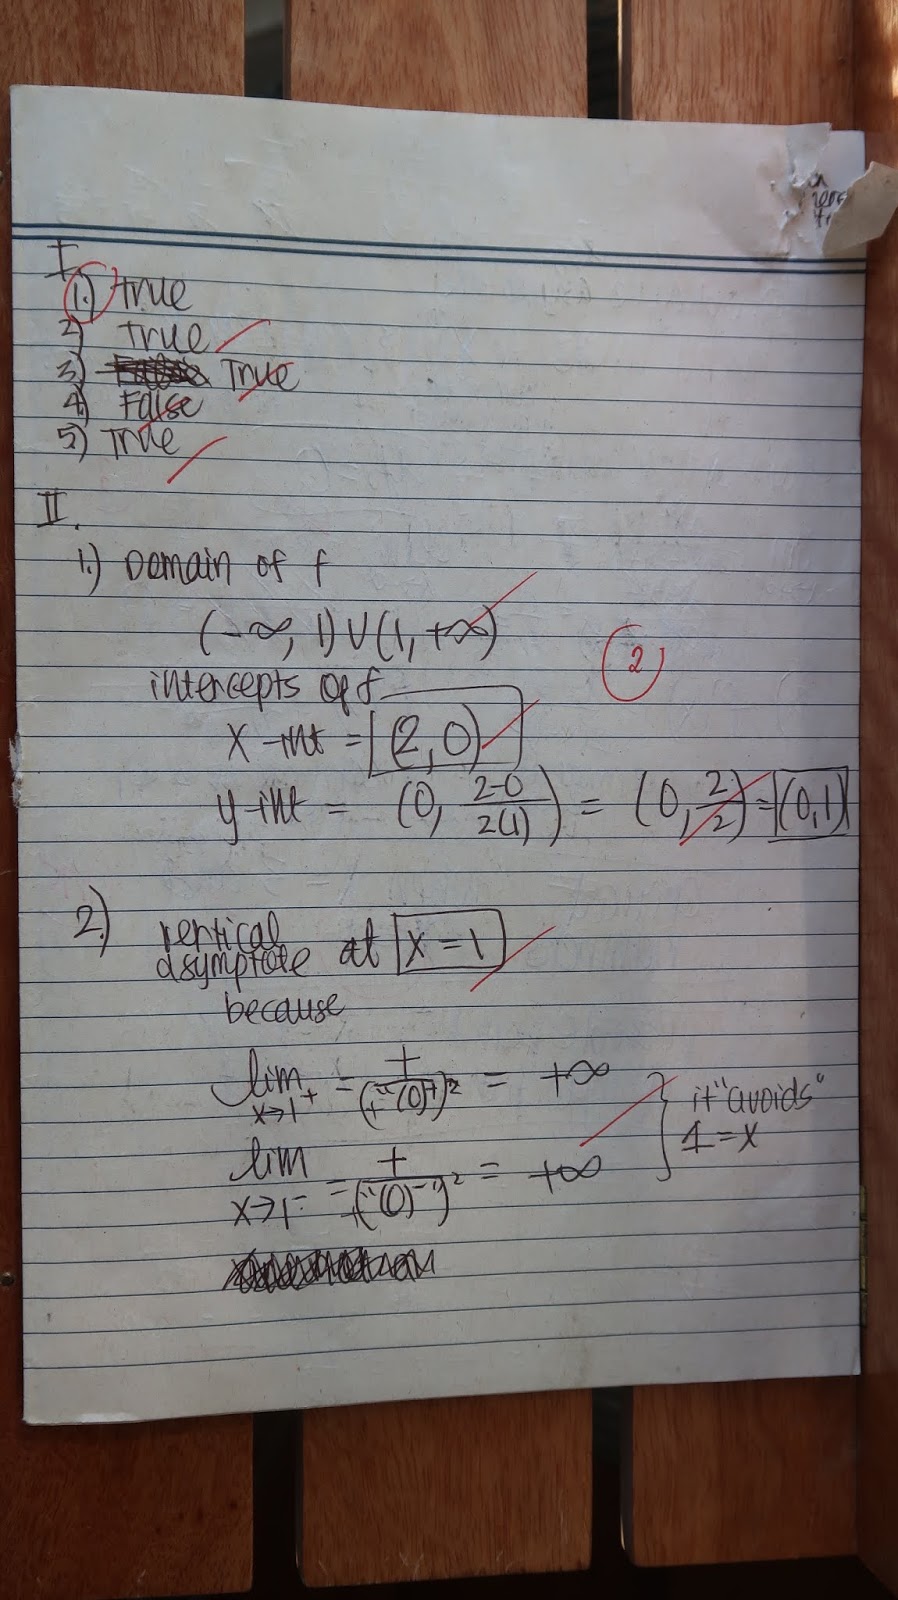 I
1.) true
2) True
3) True
4) False
5) True
II.
1.) Domain of f
(-∞, 1) ∪ (1, +∞)
2
intercepts of f
x-int = (2, 0)
y-int = (0, 2-0/2(1)) = (0, 2/2) = (0,1)
2.) vertical asymptote at x = 1
because
lim x→1⁺ = +/(+"(0)⁺")² = +∞
it "avoids"
1 = x
lim x→1⁻ = +/("(0)⁻")² = +∞